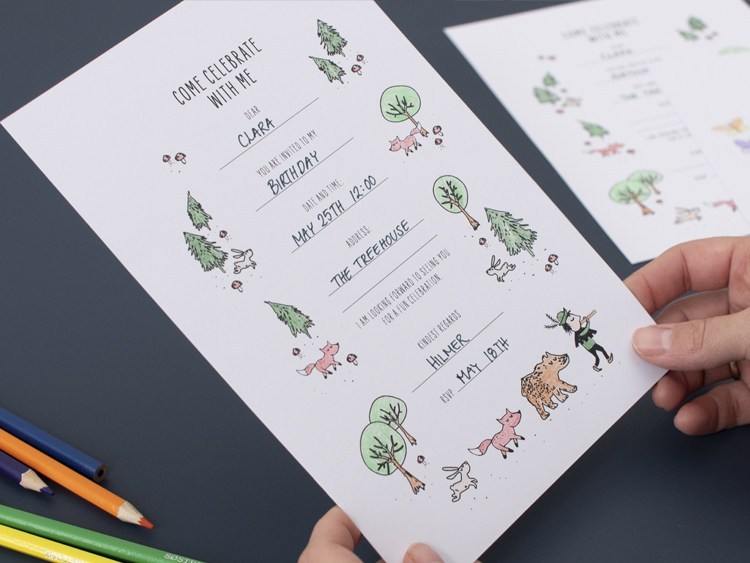 COME CELEBRATE
WITH ME
DEAR
CLARA
YOU ARE INVITED TO MY
BIRTHDAY
DATE AND TIME:
MAY 25TH 12:00
ADDRESS:
THE TREEHOUSE
I AM LOOKING FORWARD TO SEEING YOU
FOR A FUN CELEBRATION
KINDEST REGARDS
HILMER
RSVP MAY 18TH
COME CELEBRATE
WITH ME
CLARA
BIRTHDAY